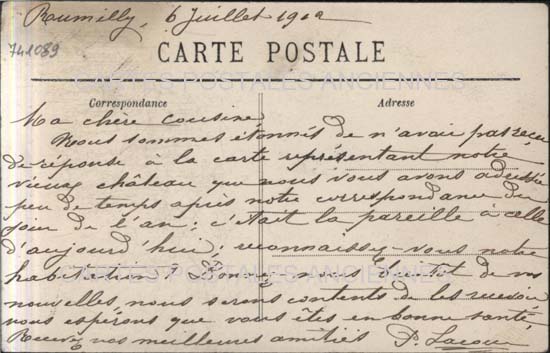 Rumilly, 6 Juillet 19
741089
CARTE POSTALE
CARTES POSTALES ANCIENNES
Correspondance
Adresse
Ma chère cousine
Nous sommes étonnés de n'avoir pas reçu
de réponse à la carte représentant notre
vieux château que nous vous avons adressée
peu de temps après notre correspondance du
jour de l'an; c'était la pareille à celle
d'aujourd'hui; reconnaissez-vous notre
habitation? nous de vos
nouvelles, nous serons contents de les recevoir
nous espérons que vous êtes en bonne santé
Recevez nos meilleures amitiés P. Lacour
CARTES POSTALES ANCIENNES